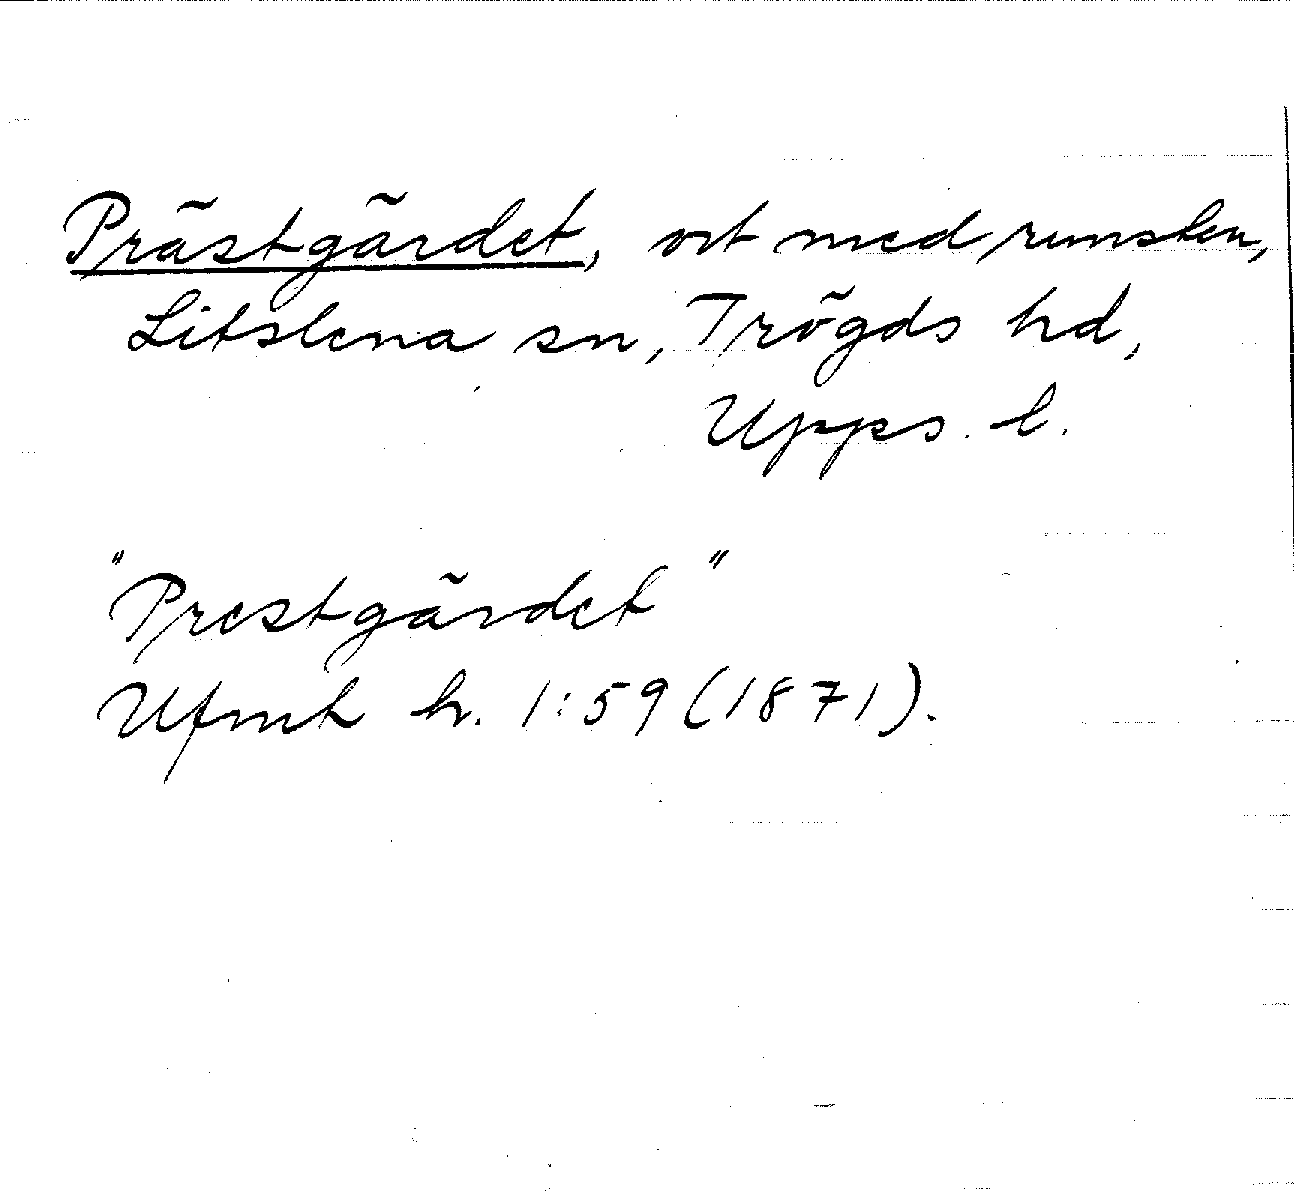 Prästgärdet, ort med runsten,
Litslena sn, Trögds hd,
Upps. l.
"Prestgärdet"
Ufmt h. 1:59 (1871).